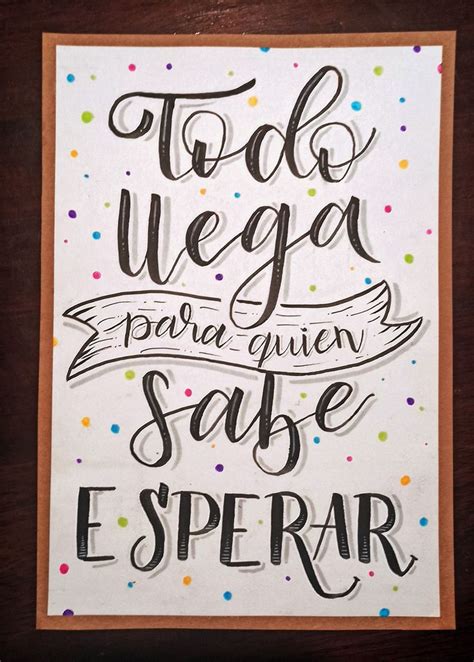 Todo
llega
para quien
sabe
ESPERAR